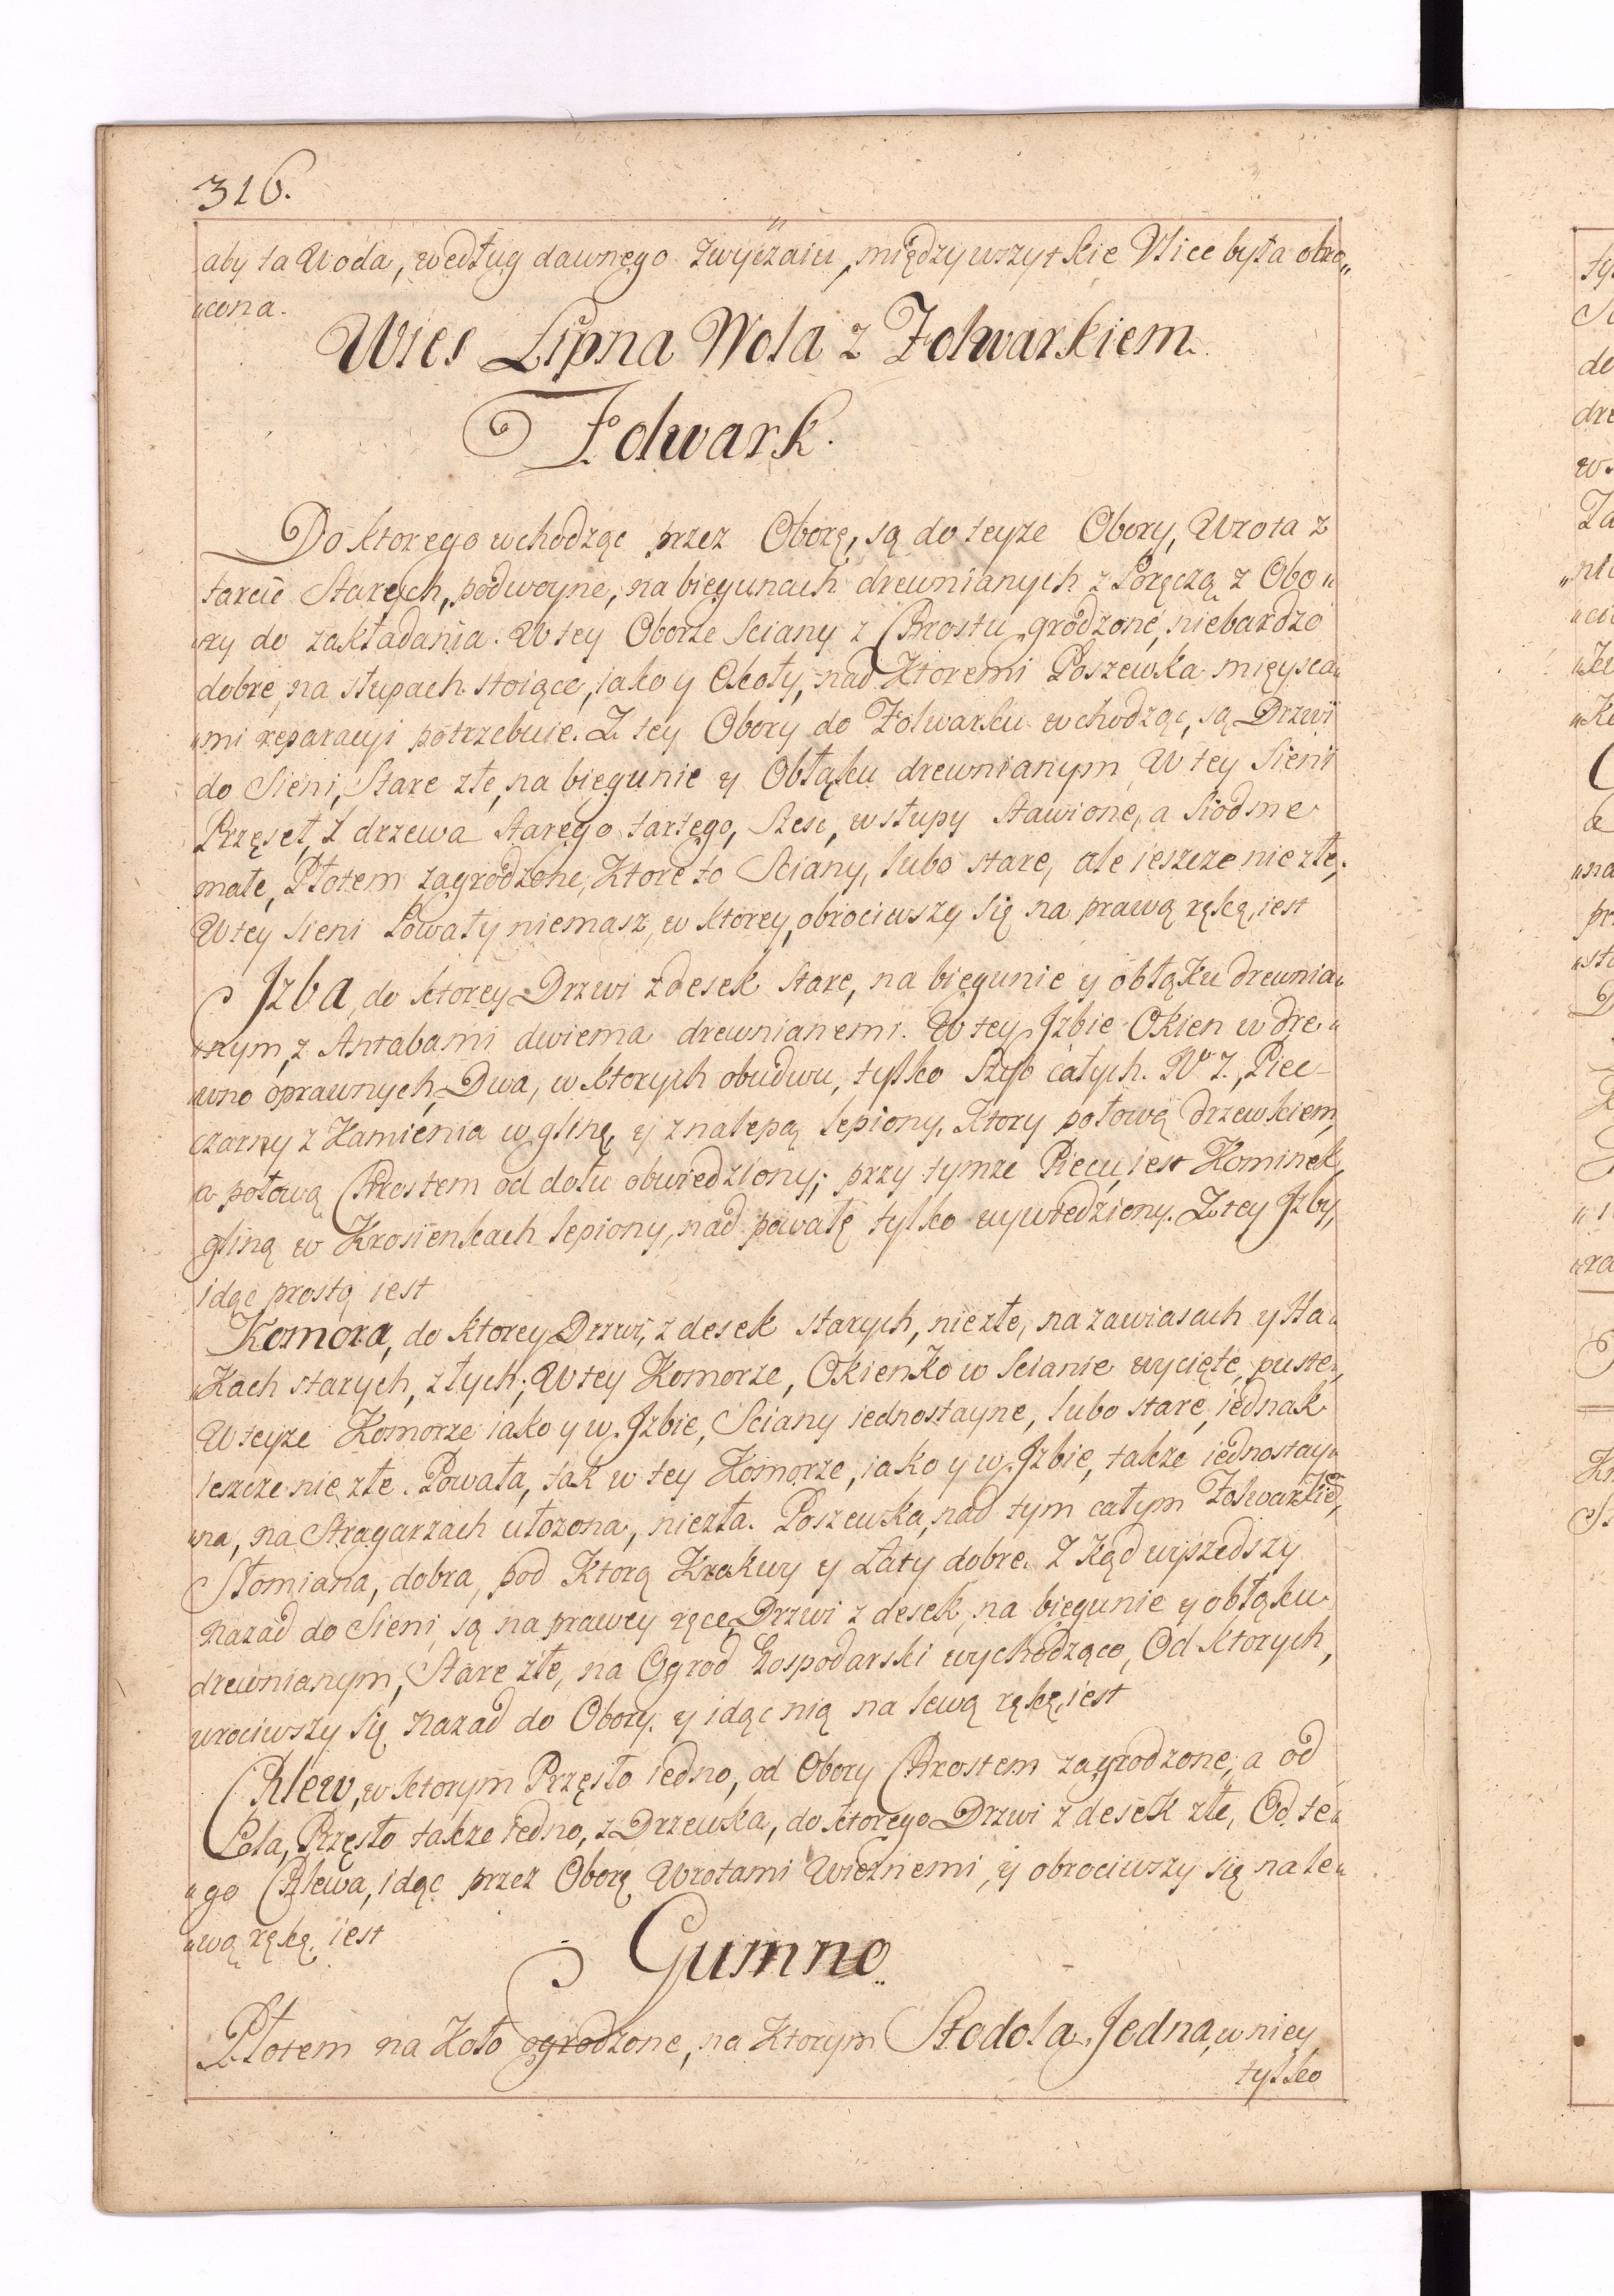 316.
aby ta Woda, według dawnego zwyczaiu, między wszytskie Vlice była obro„
„cona.
Wies Lipna Wola z Folwarkiem.
Folwark.
Do ktorego wchodząc przez Oborę, są do teyze Obory, Wrota z
tarcic Starych, podwoyne, na biegunach drewnianych z Poręczą z Obo„
„ry do zakładania. W tey Oborze Sciany z Chrostu grodzone, niebardzo
dobre, na słupach stoiące, iako y Okoły, nad Ktoremi Poszewka mieysca„
„mi reparacyi potrzebuie. Z tey Obory do Folwarku wchodząc, są Drzwi
do Sieni, Stare złe, na biegunie y Obłąku drewnianym W tey Sieni
Przęseł, z drzewa Starego tartego, Szesc, w słupy Stawione, a Siodme
małe, Płotem zagrodzone, Ktore to Sciany, lubo stare, ale ieszcze nie złe,
W tey Sieni Powały niemasz, w ktorey, obrociwszy się na prawą rękę, iest
Jzba, do ktorey Drzwi z desek Stare, na biegunie y obłąku drewnia„
„nym, z Antabami dwiema drewnianemi. W tey Jzbie Okien w dre„
„wno oprawnych, Dwa, w ktorych obudwu, tylko Szyb całych. No 7. Piec
czarny z Kamienia w glinę, y z nalepą lepiony, Ktory połową drzewkiem,
a połową Chrostem od dołu obwiedziony; przy tymze Piecu, iest Kominek,
gliną w Krosienkach lepiony, nad powałę tylko wywiedziony. Z tey Jzby,
idąc prosto iest
Komora, do ktorey Drzwi, z desek starych, nie złe, na zawiasach y Ha„
„kach starych, złych; W tey Komorze, Okienko w Scianie wycięte, puste,
W teyze Komorze iako y w Jzbie, Sciany iednostayne, lubo stare, iednak
ieszcze nie złe. Powała, tak w tey Komorze, iako y w Jzbie, takze iednostay„
„na, na Stragarzach ułozona, niezła. Poszewka, nad tym całym Folwarkiē,
Słomiana, dobra, pod Ktorą Krokwy y Łaty dobre. Z kąd wyszedszy
nazad do Sieni, są na prawey ręce Drzwi z desek, na biegunie y obłąku
drewnianym, Stare złe, na Ogrod Gospodarski wychodzące, Od ktorych,
wrociwszy się nazad do Obory. y idąc nią na lewą rękę, iest
Chlew, w ktorym Przęsło iedno, od Obory Chrostem zagrodzone, a od
Pola, Przęsło takze iedno, z Drzewka, do ktorego Drzwi z desek złe, Od te„
„go Chlewa, idąc przez Oborę Wrotami Wiezniemi, y obrociwszy się na le„
„wą rękę. iest
Gumno
Płotem na Koło ogrodzone, na Ktorym Stodola Jedna, w niey
tylko